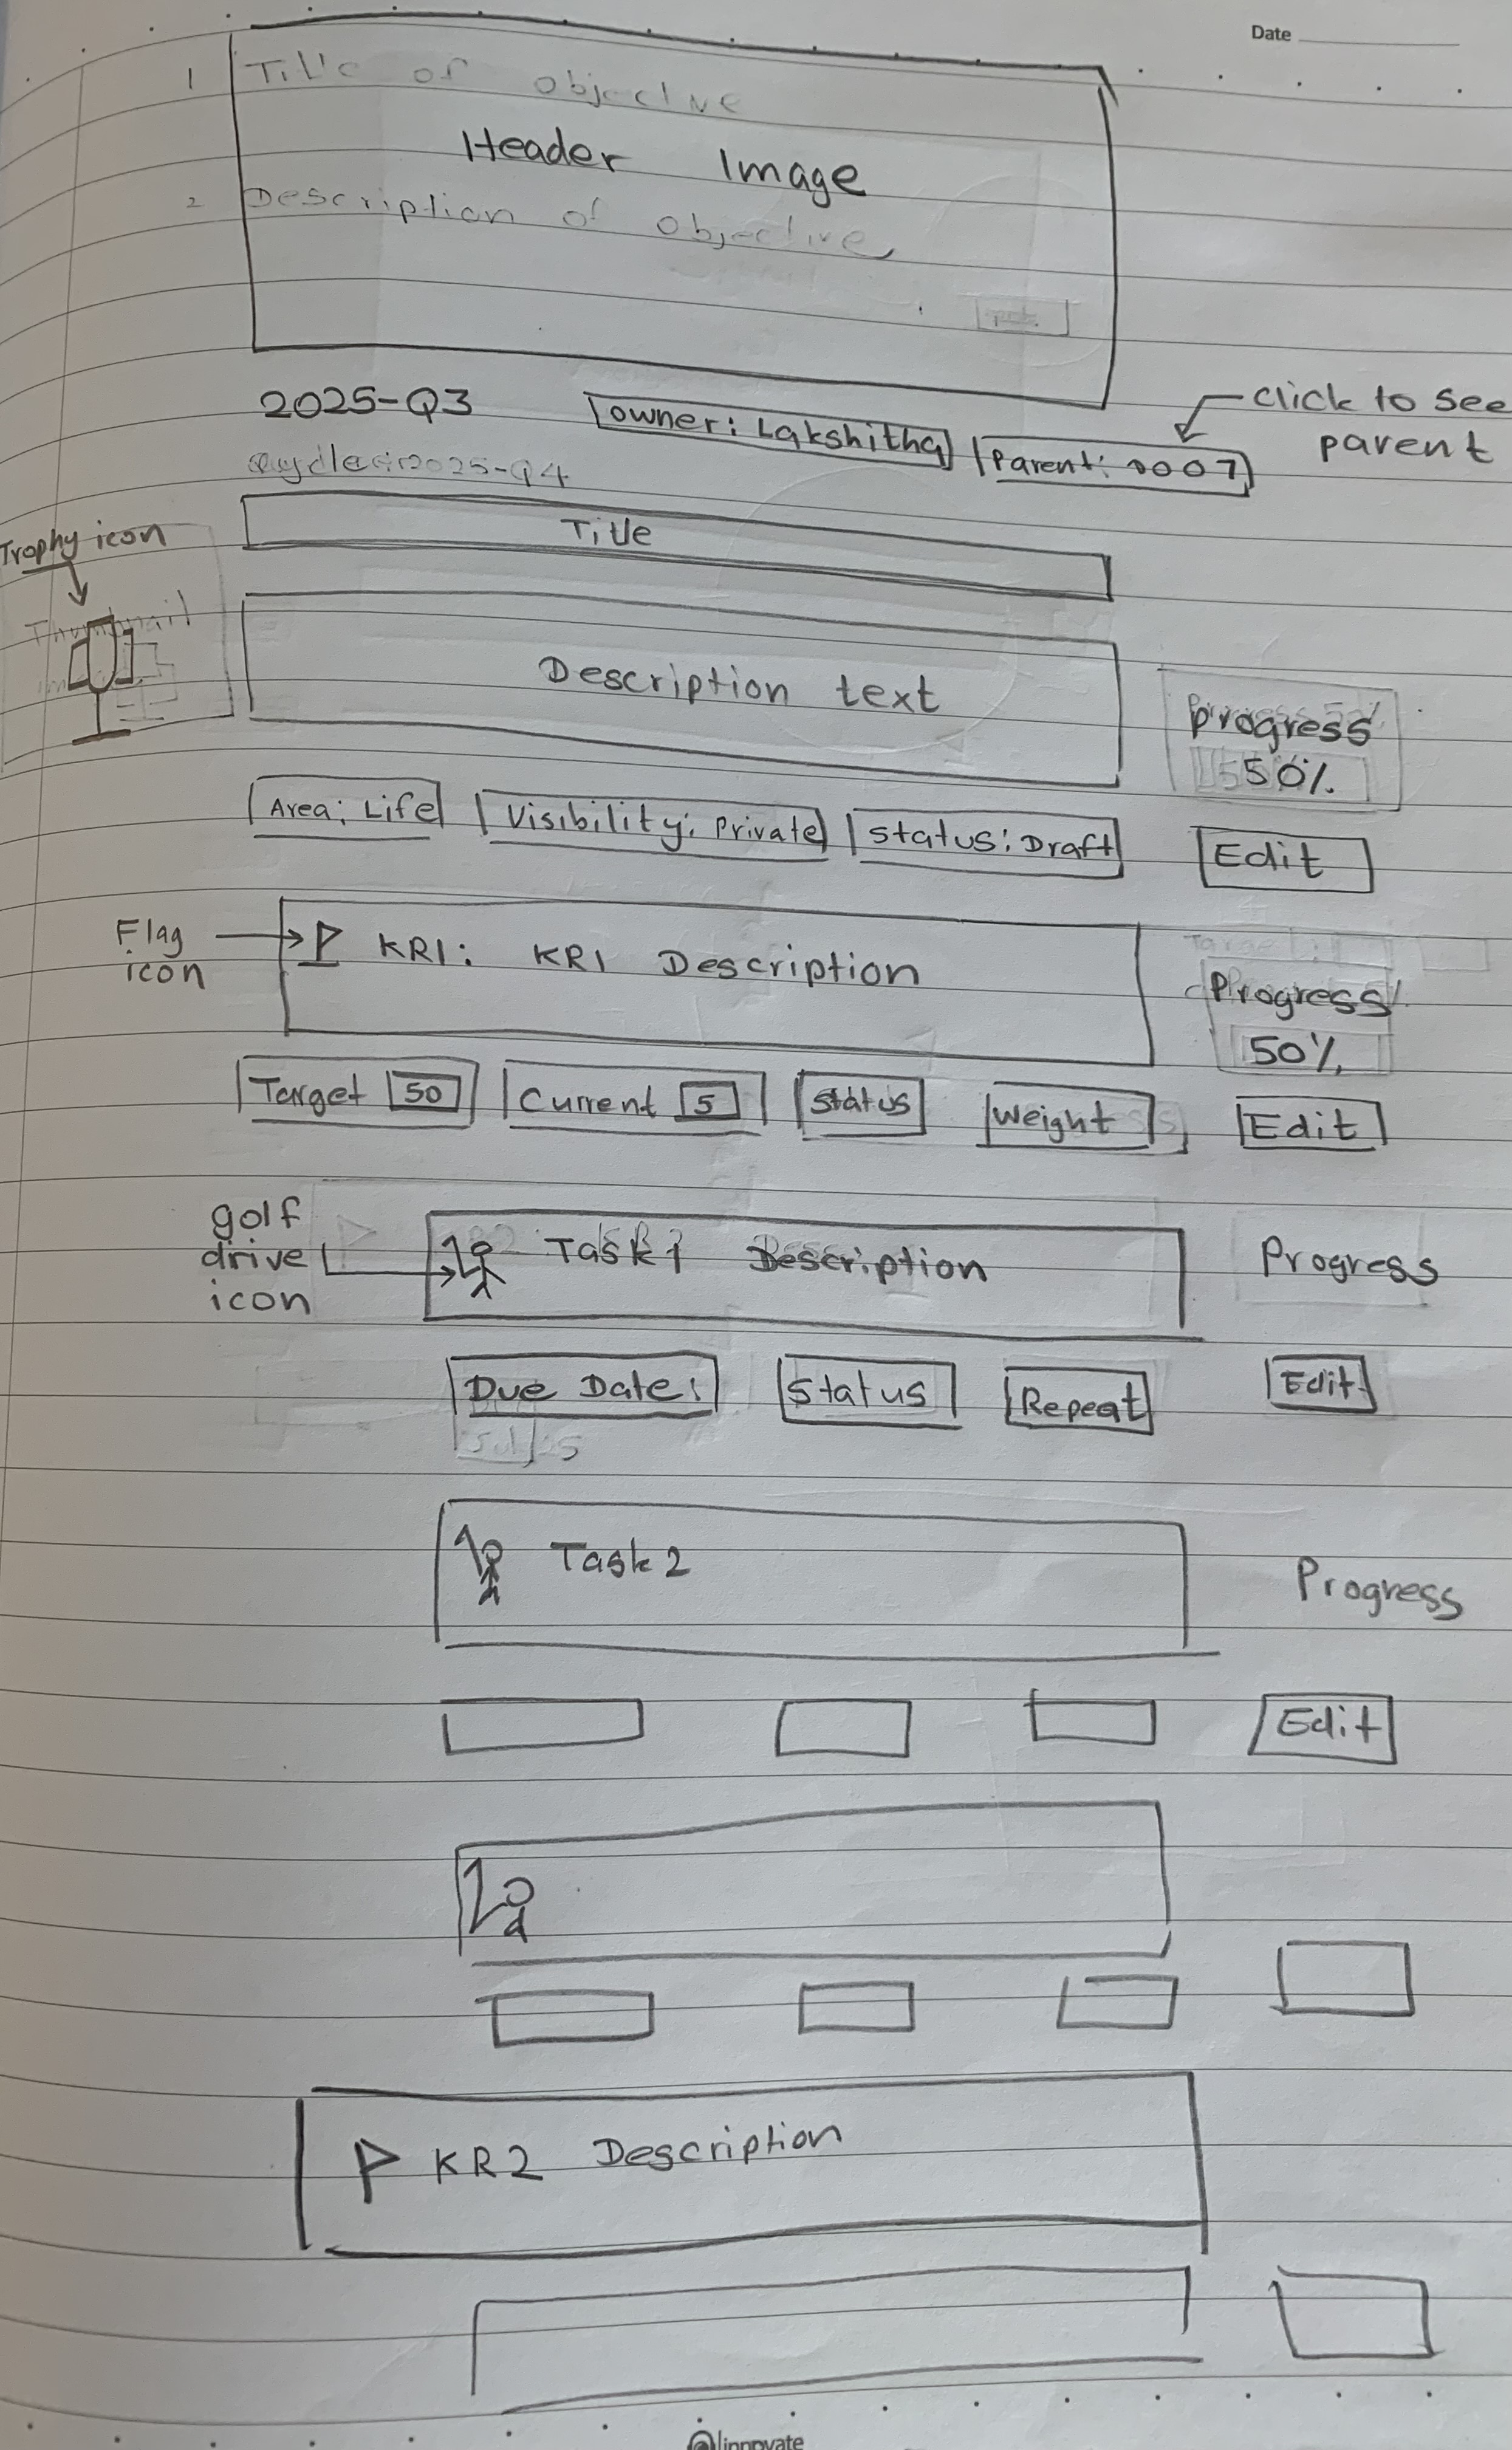 Date
1 Title of objective
Header Image
2 Description of objective
2025-Q3 owner: Lakshitha Parent: 0007
click to see
parent
2025-Q4
Title
Trophy icon
Thumbnail
Description text
Progress
50%
Area: Life Visibility: Private Status: Draft Edit
Flag
icon
KR1: KR1 Description
Progress
50%
Target 50 Current 5 Status Weight Edit
golf
drive
icon
Task 1 Description Progress
Due Date: Status Repeat Edit
Task 2 Progress
Edit
KR2 Description
innovate